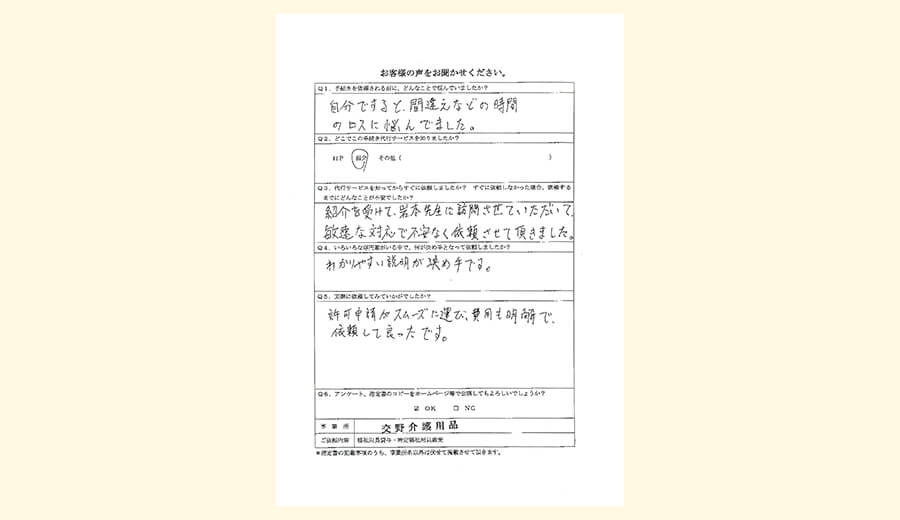 お客様の声をお聞かせください。
Q1．手続きを依頼される前に、どんなことで悩んでいましたか？
自分ですると、間違えなどの時間
のロスに悩んでました。
Q2．どこでこの手続き代行サービスを知りましたか？
HP 紹介 その他（ ）
Q3．代行サービスを知ってからすぐに依頼しましたか？ すぐに依頼しなかった場合、依頼する
までにどんなことが不安でしたか？
紹介を受けて、岩本先生に訪問させていただいて、
敏速な対応で不安なく依頼させて頂きました。
Q4．いろいろな専門家がいる中で、何が決め手となって依頼しましたか？
わかりやすい説明が決め手です。
Q5．実際に依頼してみていかがでしたか？
許可申請がスムーズに運び、費用も明解で、
依頼して良かったです。
Q6．アンケート、指定書のコピーをホームページ等で公開してもよろしいでしょうか？
☑ OK □ NG
事業所 交野介護用品
ご依頼内容 福祉用具貸与・特定福祉用具販売
＊指定書の記載事項のうち、事業所名以外は伏せて掲載させて頂きます。